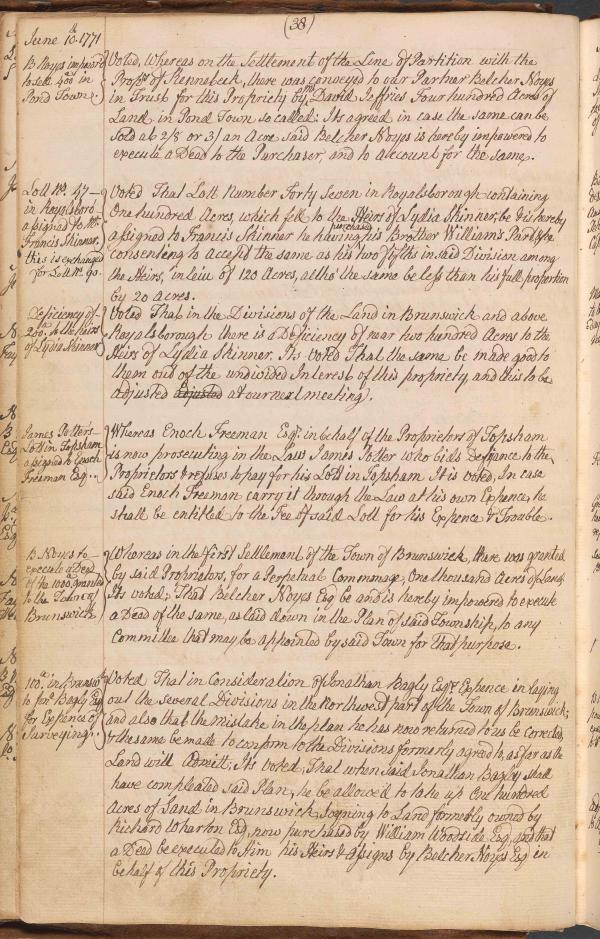 (38)
June 10th. 1771
B Noyes impowrd
to sell 400a in
Pond Town.
Voted, Whereas on the Settlement of the Line of Partition with the
Proprs of Kennebeck, there was conveyed to our Partner Belcher Noyes
in Trust for this Propriety by David Jeffries Four hundred Acres of
Land in Pond Town so called: Its agreed in case the same can be
Sold at 2/8 or 3/ an Acre said Belcher Noyes is hereby impowered to
execute a Deed to the Purchaser, and to account for the same.
Lott No. 47—
in Royalsboro
assigned to Mr
Francis Skinner.
this is exchanged
for Lott No. 90.
Voted That Lott Number Forty Seven in Royalsborough containing
One hundred Acres, which fell to the Heirs of Lydia Skinner, be & is hereby
assigned to Francis Skinner he having purchased his Brother William's Part & he
consenting to accept the same as his two fifths in said Division among
the Heirs, in lieu of 120 Acres, altho' the same be less than his full proportion
by 20 Acres.
Deficiency of
200a. to the heirs
of Lydia Skinner
Voted That in the Divisions of the Land in Brunswick and above
Royalsborough there is a Deficiency of near two hundred Acres to the
Heirs of Lydia Skinner. Its Voted That the same be made good to
them out of the undivided Interest of this propriety and this to be
adjusted adjusted at our next meeting.
James Potters
Lott in Topsham
assigned to Enoch
Freeman Esq.
Whereas Enoch Freeman Esqr. in behalf of the Proprietors of Topsham
is now prosecuting in the Law James Potter who bids Defiance to the
Proprietors & refuses to pay for his Lott in Topsham It is voted, In case
said Enoch Freeman carry it through the Law at his own Expence, he
shall be entitled to the Fee of said Lott for his Expence & Trouble.
B Noyes to—
execute a Deed
of the 1000a. granted
to the Town of
Brunswick
Whereas in the first Settlement of the Town of Brunswick, there was granted
by said Proprietors, for a Perpetual Commonage, One thousand Acres of Land.
Its voted; That Belcher Noyes Esq be and is hereby impowered to execute
a Deed of the same, as laid down in the Plan of said Township, to any
Committee that may be appointed by said Town for that purpose.
100a. in Brunswk
to Jona. Bagly Esq
for Expence of
Surveying.
Voted That in Consideration of Jonathan Bagly Esqr. Expence in laying
out the several Divisions in the Northwest part of the Town of Brunswick;
and also that the mistake in the plan he has now returned to us be corrected,
& the same be made to conform to the Divisions formerly agreed to, as far as the
Land will Admitt; Its Voted, That when said Jonathan Bagly shall
have compleated said Plan, he be allowed to take up One hundred
Acres of Land in Brunswick joyning to Land formerly owned by
Richard Wharton Esq, now purchased by William Woodside Esq, and that
a Deed be executed to Him his Heirs & assigns by Belcher Noyes Esq in
behalf of this Propriety.